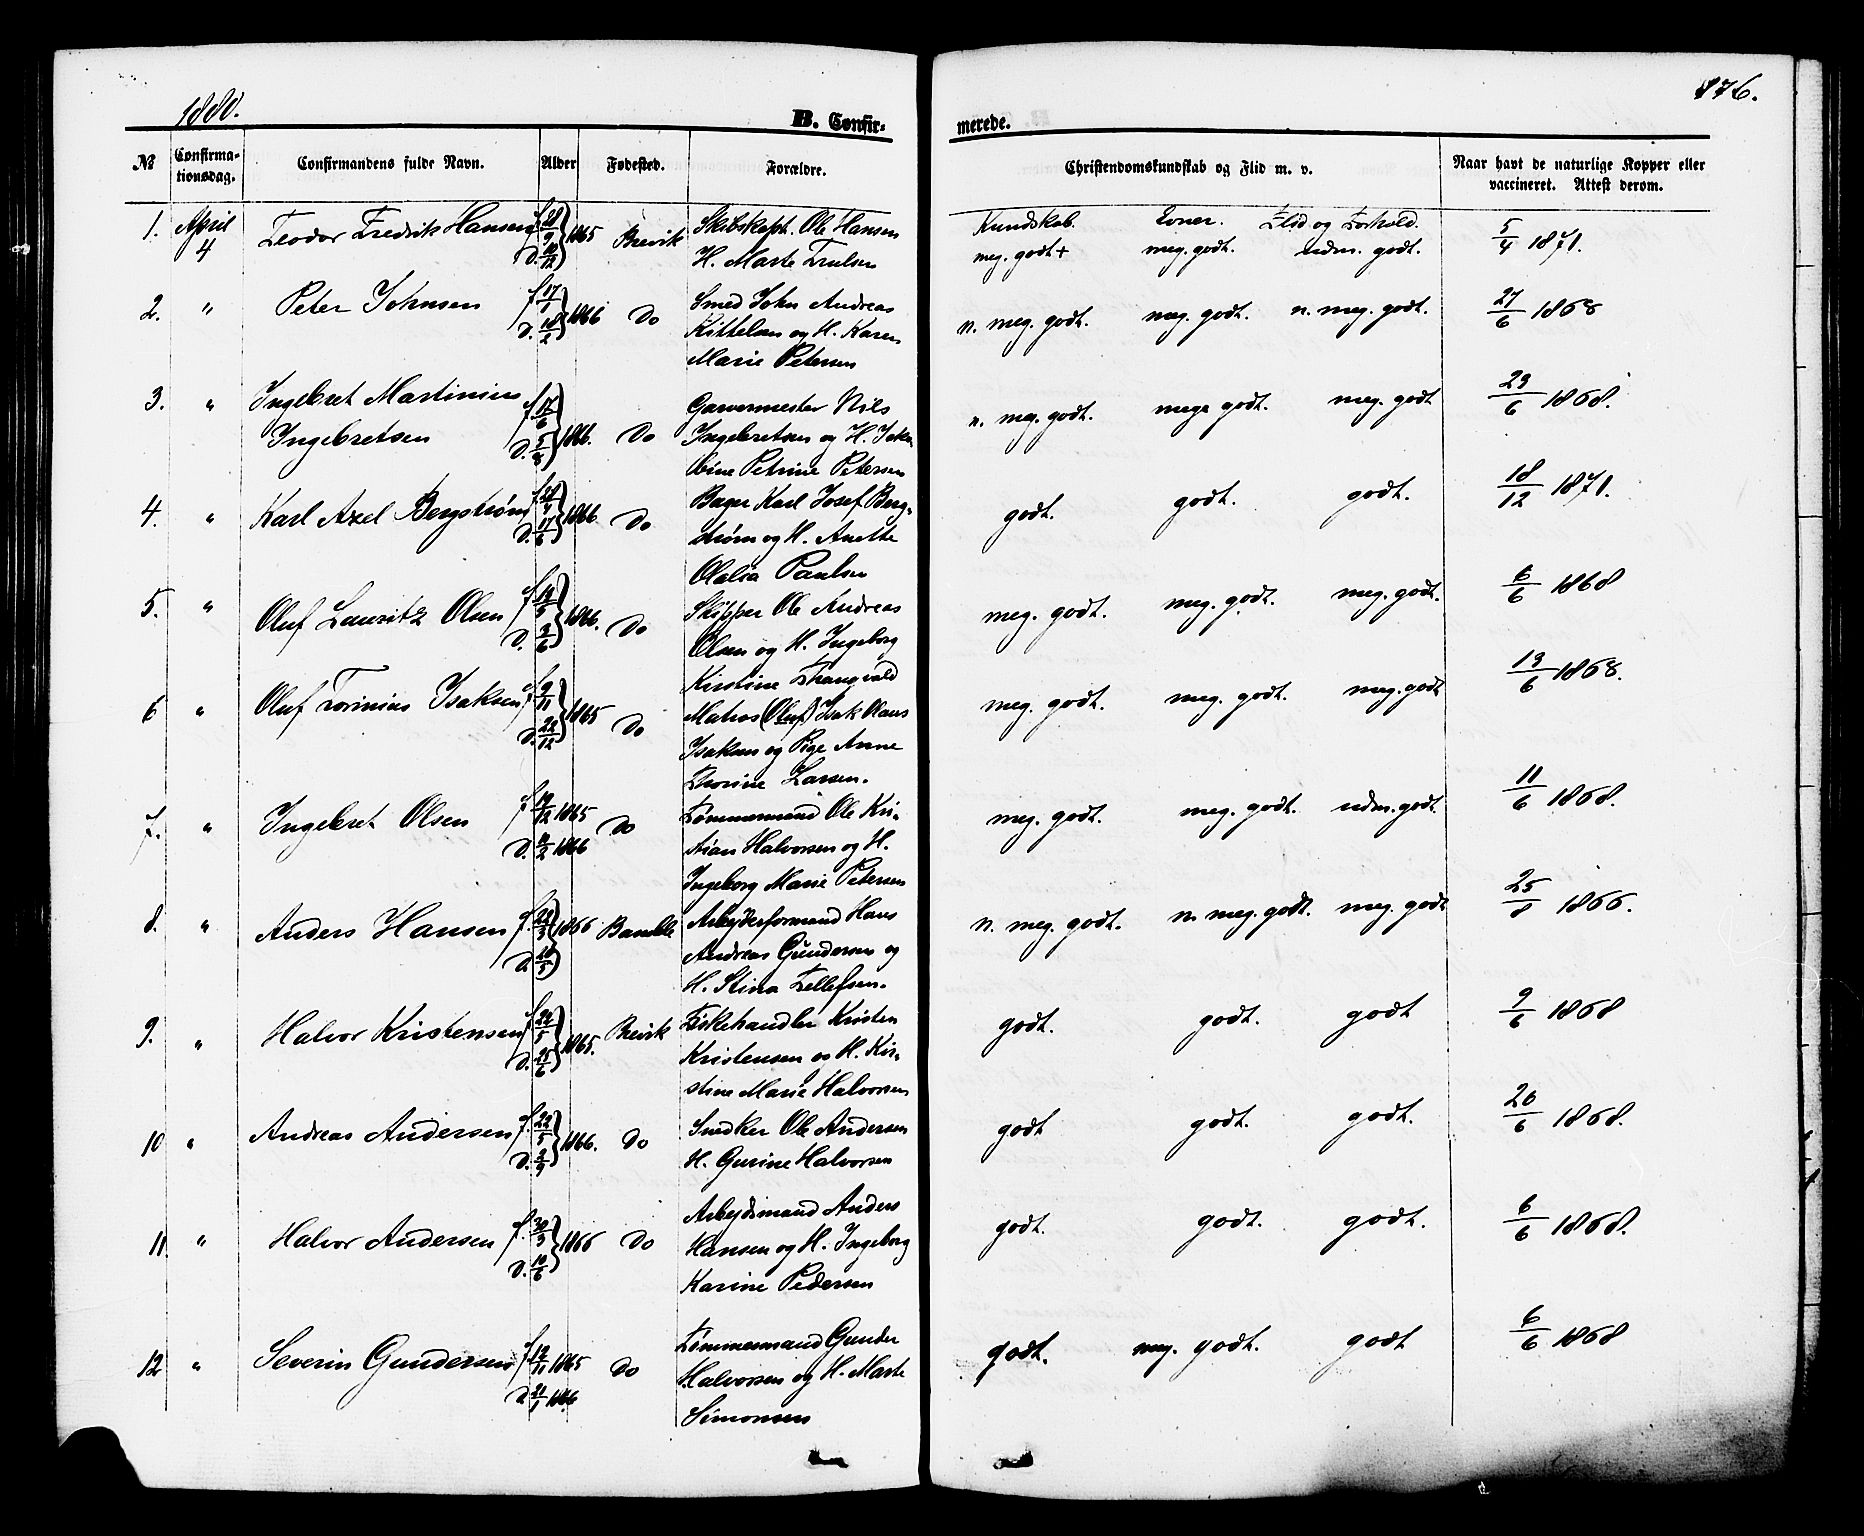 1880.
176.
B. Confir-
merede.
№ Confirma- tionsdag. Confirmandens fulde Navn. Alder Fødested. Forældre. Christendomskundskab og Flid m. v. Naar havt de naturlige Kopper eller vaccineret. Attest derom.
Kundskab. Evner. Flid og Forhold.
1. April 4 Teodor Fredrik Hansen f. 28/9 D. 10/12 1865 Brevik Skibskapt. Ole Hansen
H. Marte Trulsen meg. godt+ meg. godt. udm. godt. 5/4 1871.
2. " Peter Johnsen f. 17/1 D. 18/2 1866 Do Smed John Andreas
Kittelsen og H. Karen
Marie Petersen n. meg. godt. meg. godt. n. meg. godt. 27/6 1868
3. " Ingebret Martinius
Ingebretsen f. 17/6 D. 5/8 1866. Do Garvermester Nils
Ingebretsen og H. Jako-
bine Petrine Petersen n. meg. godt. mege godt. meg. godt 23/6 1868.
4. " Karl Axel Bergstrøm D. 17/6 1866 Do Bager Karl Josef Berg-
strøm og H. Anette
Olalia Paulsen godt. godt. godt. 18/12 1871.
5. " Oluf Lauritz Olsen f. 14/5 D. 3/6 1866. Do Skipper Ole Andreas
Olsen og H. Ingeborg
Kirstine Thangvald meg. godt. meg. godt. meg. godt. 6/6 1868
6 " Oluf Torinius Isaksen f. 9/11 D. 22/12 1865 Do Matros (Oluf) Isak Olaus
Isaksen og Pige Anne
Thorine Larsen. meg. godt. meg. godt. meg. godt 13/6 1868.
7. " Ingebret Olsen f. 19/12 1865
D. 11/2 1866 Do Tømmermand Ole Kri-
stian Halvorsen og H.
Ingeborg Marie Petersen meg. godt. meg. godt. udm. godt. 11/6 1868.
8. " Anders Hansen f. 29/3 D. 10/5 1866 Bamble Arbejdsformand Hans
Andreas Gundersen og
H. Stina Tellefsen. n. meg. godt. n. meg. godt. meg. godt 25/8 1866.
9. " Halvor Kristensen f. 24/5 D. 25/6 1865. Brevik Fiskehandler Kristen
Kristensen og H. Kir-
stine Marie Halvorsen godt. godt. godt 9/6 1868
10 " Andreas Andersen f. 22/5 D. 2/9 1866. Do Snedker Ole Andersen
H. Gurine Halvorsen godt godt. godt. 26/6 1868.
11. " Halvor Andersen f. 30/3 D. 10/6 1866 Do Arbejdsmand Anders
Hansen og H. Ingeborg
Karine Pedersen godt. godt. godt. 6/6 1868.
12 " Severin Gundersen f. 12/11 1865
D. 21/1 1866 Do Tømmermand Gunder
Halvorsen og H. Marte
Simonsen godt. meg. godt. godt 6/6 1868